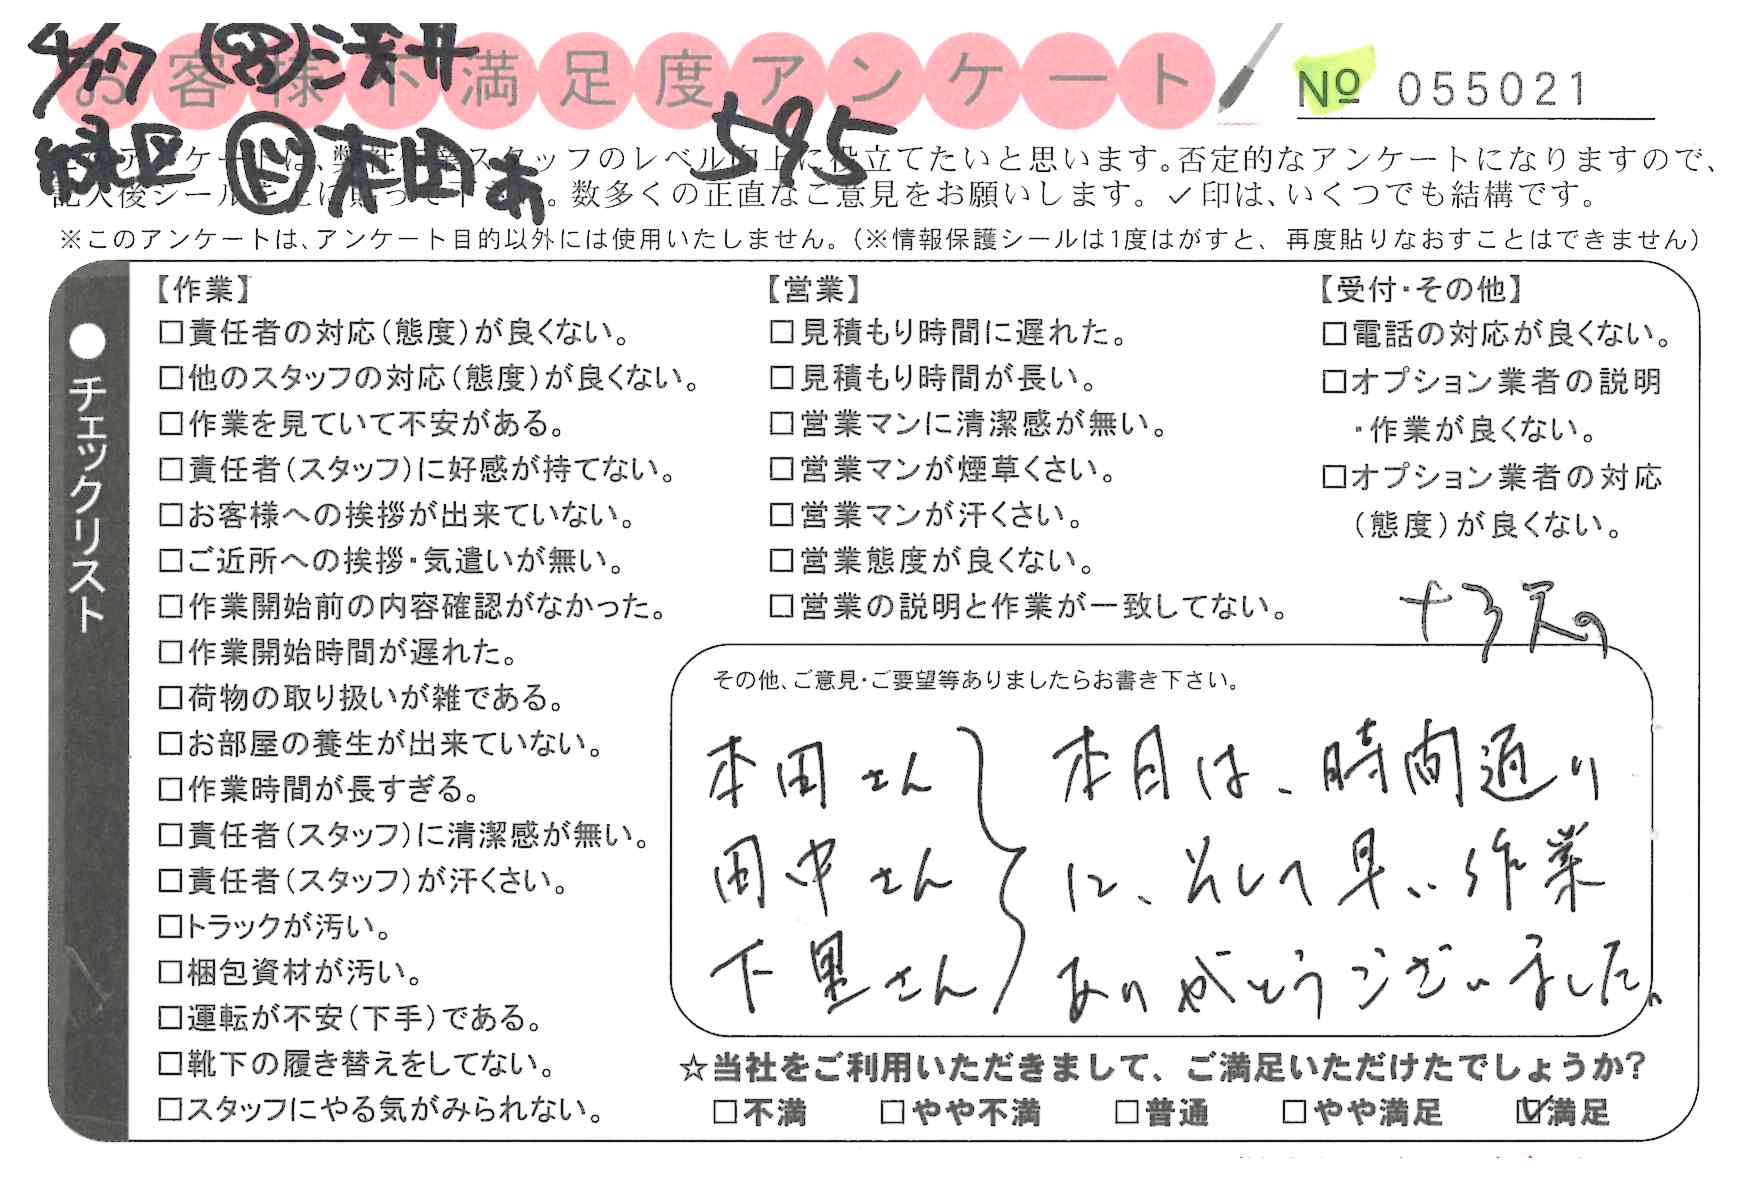 4/17 ㋐浅井
お客様不満足度アンケート
№ 055021
緑区 ㋣本田
595
アンケートは、弊社作業スタッフのレベル向上に役立てたいと思います。否定的なアンケートになりますので、
記入後シールを上に貼って下さい。数多くの正直なご意見をお願いします。✓印は、いくつでも結構です。
※このアンケートは、アンケート目的以外には使用いたしません。（※情報保護シールは1度はがすと、再度貼りなおすことはできません）
●チェックリスト
【作業】
□責任者の対応（態度）が良くない。
□他のスタッフの対応（態度）が良くない。
□作業を見ていて不安がある。
□責任者（スタッフ）に好感が持てない。
□お客様への挨拶が出来ていない。
□ご近所への挨拶・気遣いが無い。
□作業開始前の内容確認がなかった。
□作業開始時間が遅れた。
□荷物の取り扱いが雑である。
□お部屋の養生が出来ていない。
□作業時間が長すぎる。
□責任者（スタッフ）に清潔感が無い。
□責任者（スタッフ）が汗くさい。
□トラックが汚い。
□梱包資材が汚い。
□運転が不安（下手）である。
□靴下の履き替えをしてない。
□スタッフにやる気がみられない。
【営業】
□見積もり時間に遅れた。
□見積もり時間が長い。
□営業マンに清潔感が無い。
□営業マンが煙草くさい。
□営業マンが汗くさい。
□営業態度が良くない。
□営業の説明と作業が一致してない。
【受付・その他】
□電話の対応が良くない。
□オプション業者の説明
・作業が良くない。
□オプション業者の対応
（態度）が良くない。
その他、ご意見・ご要望等ありましたらお書き下さい。
本田さん
田中さん
下里さん
本日は、時間通り
に、そして早い作業
ありがとうございました。
☆当社をご利用いただきまして、ご満足いただけたでしょうか?
□不満 □やや不満 □普通 □やや満足 ☑満足